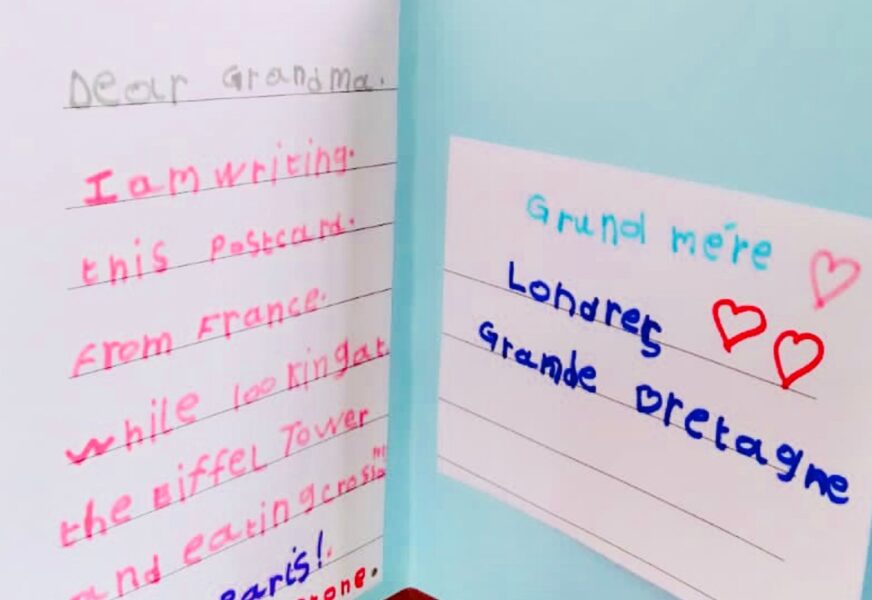 Dear Grandma.
I am writing.
this Postcard.
From France.
while looking at
the Eiffel Tower
and eating crossa
Paris!.
Grund mére
Londres
Gramde Bretagne